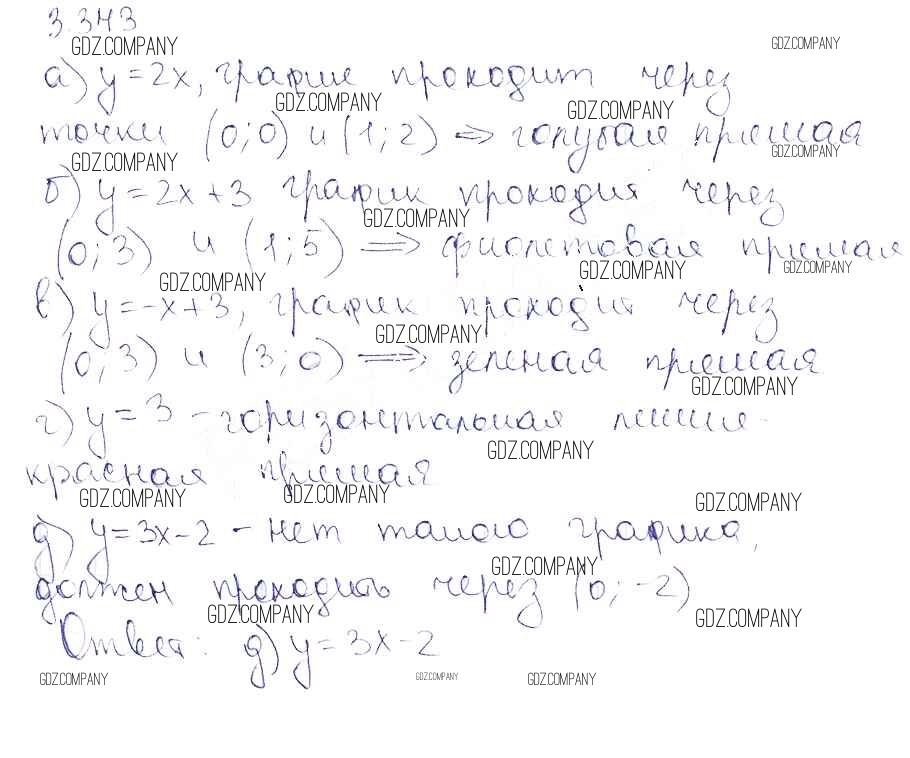 3.343
GDZ.COMPANY GDZ.COMPANY
а) y=2x, график проходит через
GDZ.COMPANY GDZ.COMPANY
точки (0;0) и (1;2) => голубая прямая
GDZ.COMPANY GDZ.COMPANY
б) y=2x+3 график проходит через
GDZ.COMPANY
(0;3) и (1;5) => фиолетовая прямая
GDZ.COMPANY GDZ.COMPANY GDZ.COMPANY
в) y=-x+3, график проходит через
GDZ.COMPANY
(0;3) и (3;0) => зеленая прямая
GDZ.COMPANY
г) y=3 - горизонтальная линия -
GDZ.COMPANY
красная прямая
GDZ.COMPANY GDZ.COMPANY GDZ.COMPANY
д) y=3x-2 - нет такого графика,
GDZ.COMPANY
должен проходить через (0;-2)
GDZ.COMPANY GDZ.COMPANY
Ответ: д) y=3x-2
GDZ.COMPANY GDZ.COMPANY GDZ.COMPANY